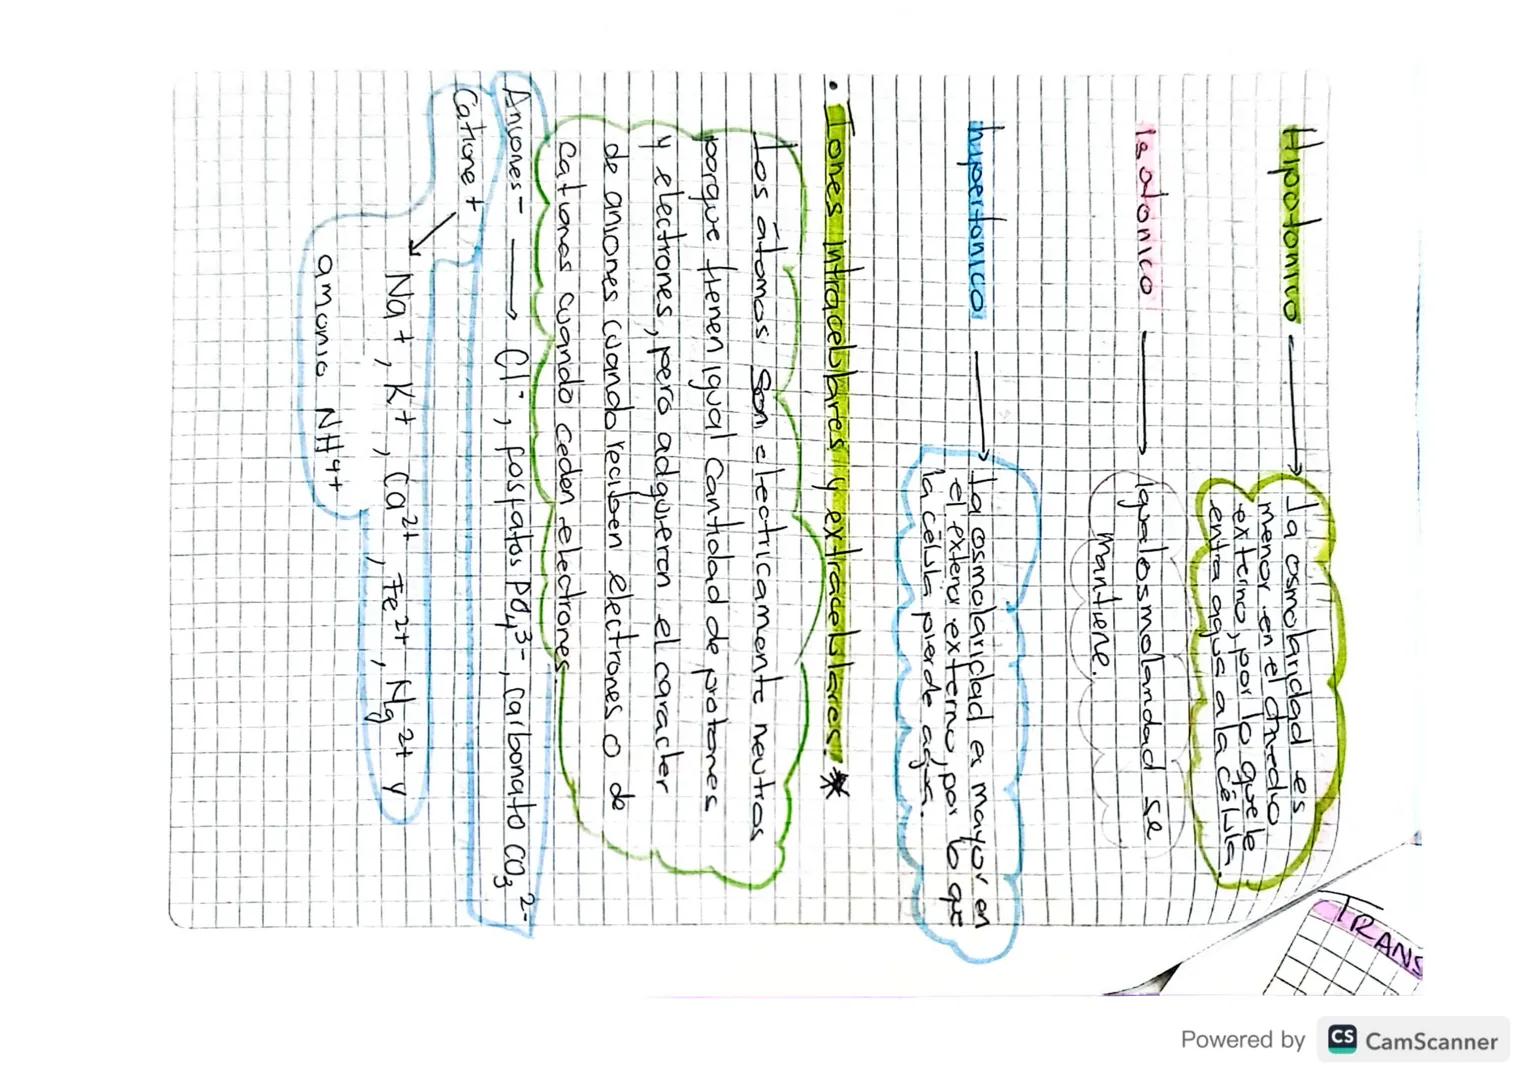 Hipotonico → La osmolaridad es
menor en el medio
externo, por lo que le
entra agua a la célula.
Isotonico → Igual osmolaridad se
mantiene.
hipertonico → La osmolaridad es mayor en
el externo externo, por lo que
la célula pierde agua.
• Iones intracelulares y extracelulares. *
Los átomos son electricamente neutros
porque tienen igual cantidad de protones
y electrones, pero adquieren el caracter
de aniones cuando reciben electrones o de
Cationes cuando ceden electrones.
Aniones - → Cl⁻, fosfatos PO₄³⁻, carbonato CO₃²⁻
Catione + → Na+, K+, Ca²⁺, Fe²⁺, Mg²⁺ y
amonio NH⁴⁺
TRANS
Powered by CS CamScanner